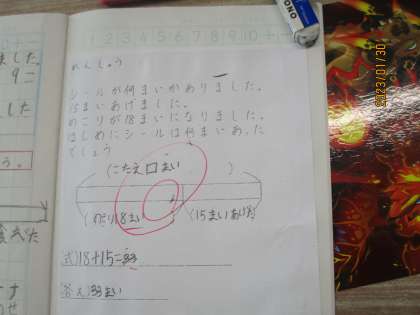 れんしゅう
シールが何まいかありました。
15まいあげました。
のこりが18まいになりました。
はじめにシールは何まいあった
でしょう
(こたえ□まい )
(のこり18まい) (15まいあげた)
式)18+15=33
答え)33まい
1 2 3 4 5 6 7 8 9 10
MONO
2023/01/30
ました
9こ
した
う。